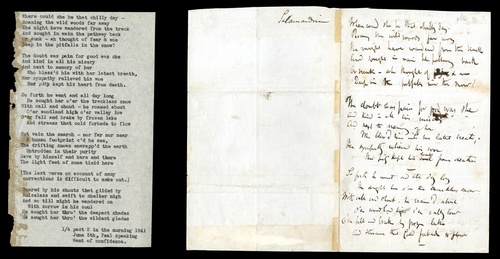 Where could she be that chilly day -
Among the wild woods far away
She might have wandered from the track
And sought in vain the pathway back
Or sunk - oh thought of fear & woe
Deep in the pitfalls in the snow?
The doubt was pain for good was she
And kind in all his misery
And next to memory of her
Who bless'd his with her latest breath,
Her sympathy relieved his woe
Her pity kept his heart from death.
So forth he went and all day long
He sought her o'er the trackless snow
With call and shout - he roamed about
O'er woodland high o'er valley low
O'er fell and brake by frozen lake
And streams that cold forbade to flow
But vain the search - nor far nor near
human footprint c'd he see,
The drifting snows enwrapp'd the earth
Untrodden in their purity
Save by himself and here and there
The light feet of some timid hare
(The last verse on account of many
corrections is difficult to make out.)
Scared by his shouts that glided by
Noiseless and swift to shelter nigh
And so till night he wandered on
With sorrow in his soul
He sought her thro' the deepest shades
He sought her thro' the wildest glades
1/4 past 2 in the morning 1841
June 5th, Peal speaking
Want of confidence.
Salamandrine
Where could she be that chilly day
Among the wild woods far away
She might have wandered from the track
And sought in vain the pathway back
Or sunk - oh thought of fear & woe
Deep in the pitfalls in the snow?
The doubt was pain for good was she
And kind in all his misery
And next to memory
Who bless'd his with her latest breath,
Her sympathy relieved his woe
Her pity kept his heart from death
So forth he went and all day long
He sought her o'er the trackless snow
With call and shout - he roam'd about
O'er woodland high o'er valley low
O'er fell and brake by frozen lake
And streams that cold forbade to flow